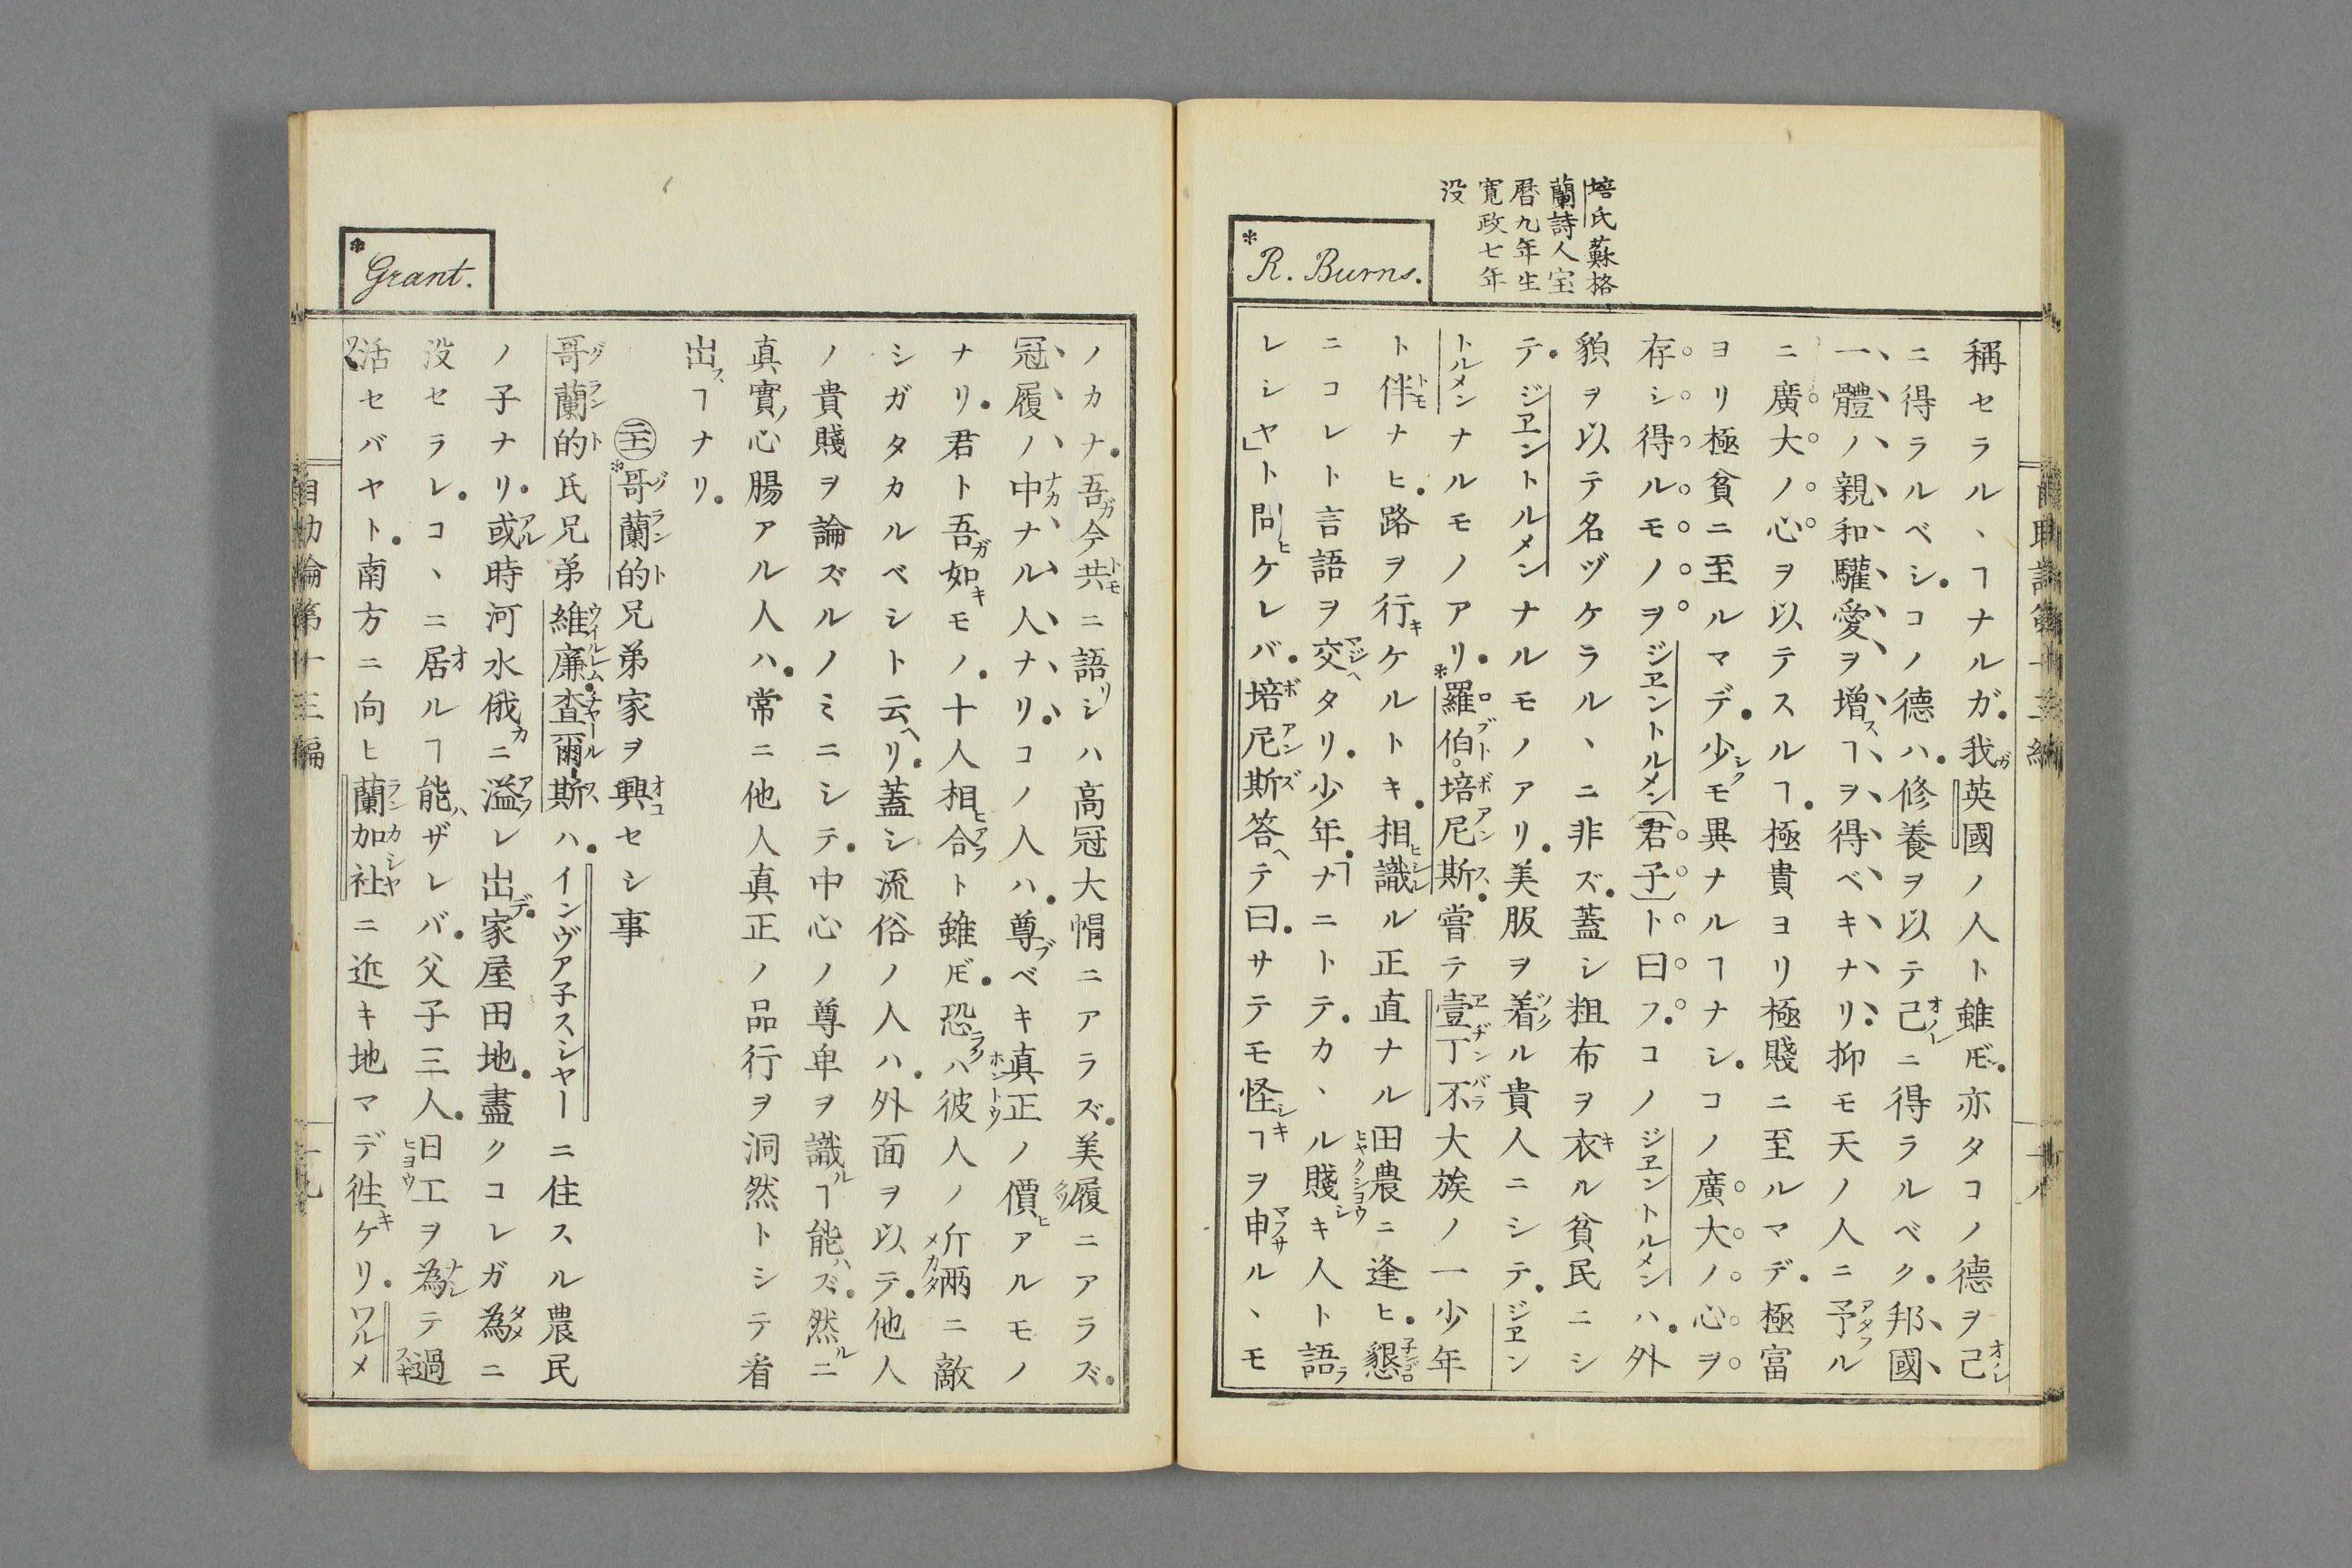 培氏蘇格
蘭詩人宝
暦九年生
寛政七年
没
*R. Burns.
稱セラルヽヿナルガ。我英國ノ人ト雖𪜈。亦タコノ德ヲ己
ニ得ラルベシ。コノ德ハ。修養ヲ以テ己ニ得ラルベク。邦國
一體ノ親和驩愛ヲ增スヿヲ得ベキナリ。抑モ天ノ人ニ予ル
ニ廣大ノ心ヲ以テスルヿ。極貴ヨリ極賤ニ至ルマデ。極富
ヨリ極貧ニ至ルマデ。少シクモ異ナルヿナシ。コノ廣大ノ心ヲ
存シ得ルモノヲジヱントルメン(君子)ト曰フ。コノジヱントルメンハ。外
貌ヲ以テ名ヅケラルヽニ非ズ。蓋シ粗布ヲ衣ル貧民ニシ
テ。ジヱントルメンナルモノアリ。美服ヲ着ル貴人ニシテ。ジヱン
トルメンナルモノアリ。*羅伯。培尼斯。嘗テ壹丁不大族ノ一少年
ト伴ナヒ。路ヲ行キケルトキ。相識ル正直ナル田農ニ逢ヒ。懇
ニコレト言語ヲ交タリ。少年。ナニトテ。カヽル賤シキ人ト語ラ
レシヤ」ト問ヒケレバ。培尼斯答ヘテ曰。サテモ怪シキヿヲ申ルヽモ
*Grant.
ノカナ。吾ガ今共ニ語リシハ高冠大帽ニアラズ。美履ニアラズ。
冠履ノ中ナル人ナリ。コノ人ハ。尊ブベキ真正ノ價ヒアルモノ
ナリ。君ト吾ガ如キモノ。十人相合ト雖𪜈。恐ラクハ彼人ノ斤兩ニ敵
シガタカルベシト云ヘリ。蓋シ流俗ノ人ハ。外面ヲ以テ。他人
ノ貴賤ヲ論ズルノミニシテ。中心ノ尊卑ヲ識ルヿ能ハズ。然ルニ
真實ノ心腸アル人ハ。常ニ他人真正ノ品行ヲ洞然トシテ看
出スヿナリ。
*哥蘭的兄弟家ヲ興セシ事
哥蘭的氏兄弟維廉。査爾斯ハ。インヴア子スシヤーニ住スル農民
ノ子ナリ。或時河水俄カニ溢レ出デ。家屋田地。盡クコレガ為ニ
没セラレ。コヽニ居ルヿ能ハザレバ。父子三人。日工ヲ為テ過
活セバヤト。南方ニ向ヒ蘭加社ニ近キ地マデ徃キケリ。ワルメ
自助論第十三編